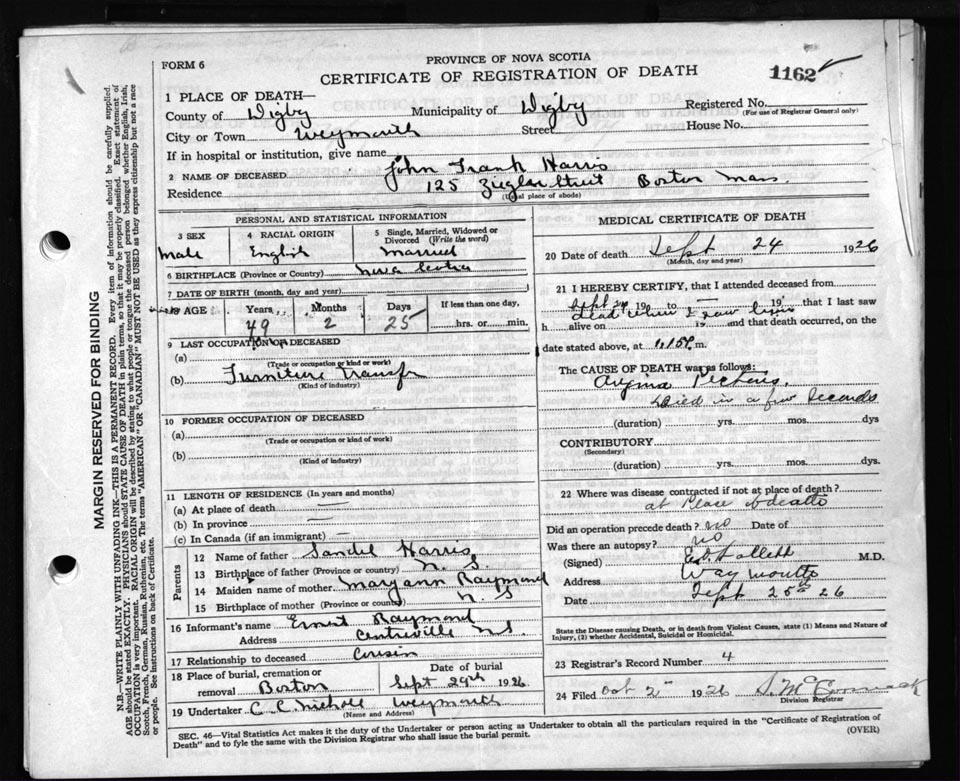 FORM 6
PROVINCE OF NOVA SCOTIA
CERTIFICATE OF REGISTRATION OF DEATH
1162
1 PLACE OF DEATH—
County of Digby Municipality of Digby Registered No.
(For use of Registrar General only)
City or Town Weymouth Street House No.
If in hospital or institution, give name
2 NAME OF DECEASED John Frank Harris
Residence 125 Ziegler Street Boston Mass.
(Usual place of abode)
PERSONAL AND STATISTICAL INFORMATION
3 SEX Male
4 RACIAL ORIGIN English
5 Single, Married, Widowed or Divorced (Write the word) Married
6 BIRTHPLACE (Province or Country) Nova Scotia
7 DATE OF BIRTH (month, day and year)
8 AGE Years Months Days If less than one day,
49 2 25 hrs. or min.
9 LAST OCCUPATION OF DECEASED
(a)
(Trade or occupation or kind of work)
(b) Furniture transfr
(Kind of industry)
10 FORMER OCCUPATION OF DECEASED
(a)
(Trade or occupation or kind of work)
(b)
(Kind of industry)
11 LENGTH OF RESIDENCE (In years and months)
(a) At place of death —
(b) In province —
(c) In Canada (if an immigrant) —
Parents
12 Name of father Harris
13 Birthplace of father (Province or country) N. S.
14 Maiden name of mother Maryann Raymond
15 Birthplace of mother (Province or country) N S
16 Informant's name Ernest Raymond
Address Centreville N.S.
17 Relationship to deceased Cousin
18 Place of burial, cremation or removal Boston
Date of burial Sept 29th 1926
19 Undertaker C. C. Nichols Weymouth
(Name and Address)
MEDICAL CERTIFICATE OF DEATH
20 Date of death Sept 24 1926
(Month, day and year)
21 I HEREBY CERTIFY, that I attended deceased from
Sept 24 19 to — 19, that I last saw
h alive on dead when I saw him 19 and that death occurred, on the
date stated above, at 1.15 P. m.
The CAUSE OF DEATH was as follows:
Angina Pectoris,
Died in a few seconds
(duration) yrs. mos. dys
CONTRIBUTORY
(Secondary)
(duration) yrs. mos. dys.
22 Where was disease contracted if not at place of death?
at place of death
Did an operation precede death? no Date of
Was there an autopsy? no
(Signed) M.D.
Address Waymouth
Date Sept 25th 26
State the Disease causing Death, or in death from Violent Causes, state (1) Means and Nature of Injury, (2) whether Accidental, Suicidal or Homicidal.
23 Registrar's Record Number 4
24 Filed Oct 2 1926
Division Registrar
SEC. 46—Vital Statistics Act makes it the duty of the Undertaker or person acting as Undertaker to obtain all the particulars required in the "Certificate of Registration of
Death" and to fyle the same with the Division Registrar who shall issue the burial permit. (OVER)
MARGIN RESERVED FOR BINDING
N.B.—WRITE PLAINLY WITH UNFADING INK—THIS IS A PERMANENT RECORD. Every item of information should be carefully supplied.
AGE should be stated EXACTLY. PHYSICIANS should STATE CAUSE OF DEATH in plain terms, so that it may be properly classified. Exact statement of
OCCUPATION is very important. RACIAL ORIGIN will be described by stating to what people or tongue the deceased person belonged whether English, Irish,
Scotch, French, German, Russian, Ruthenian, etc. The terms "AMERICAN" OR "CANADIAN" MUST NOT BE USED as they express citizenship but not a race
or people. See instructions on back of Certificate.